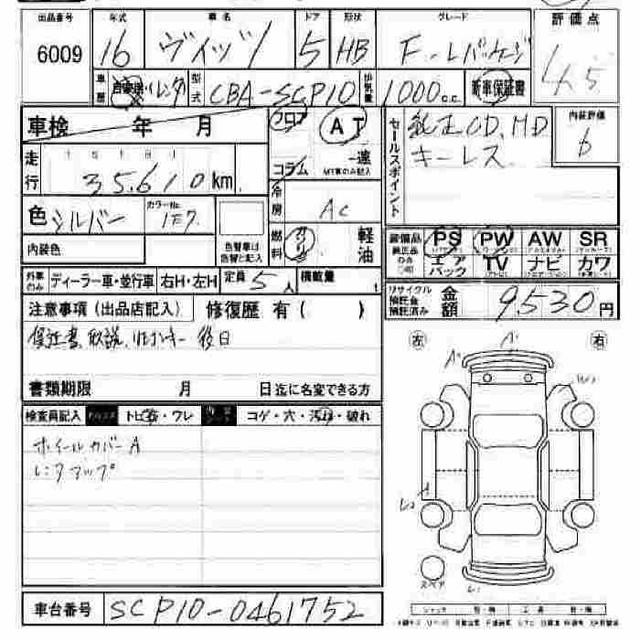 出品番号 年式 車名 ドア 形状 グレード 評価点
6009 16 ヴィッツ 5 HB F-Lパッケージ 4.5
車歴 自家用・レンタ 型式 CBA-SCP10 排気量 1000 c.c. 新車保証書
車検 年 月 フロア AT 内装評価
コラム 一速 セールスポイント 純正CD,MD b
走行 35,610 km MT車のみ記入 キーレス
冷房 AC
色 シルバー カラーNo. 1E7 色替車は色替と記入 燃料 ガソリン 軽油
内装色
装備品 純正品のみ○印 PS PW AW SR
エアバック TV ナビ カワ
外車のみ ディーラー車・並行車 右H・左H 定員 5人 積載量 t
リサイクル預託金預託済み 金額 9,530円
注意事項(出品店記入) 修復歴 有( )
保証書、取説、リモコンキー後日
左 右
A'
書類期限 月 日迄に名変できる方
検査員記入 トビ石・ワレ コゲ・穴・汚れ・破れ
ホイールカバーA
レ
スペア
車台番号 SCP10-0461752